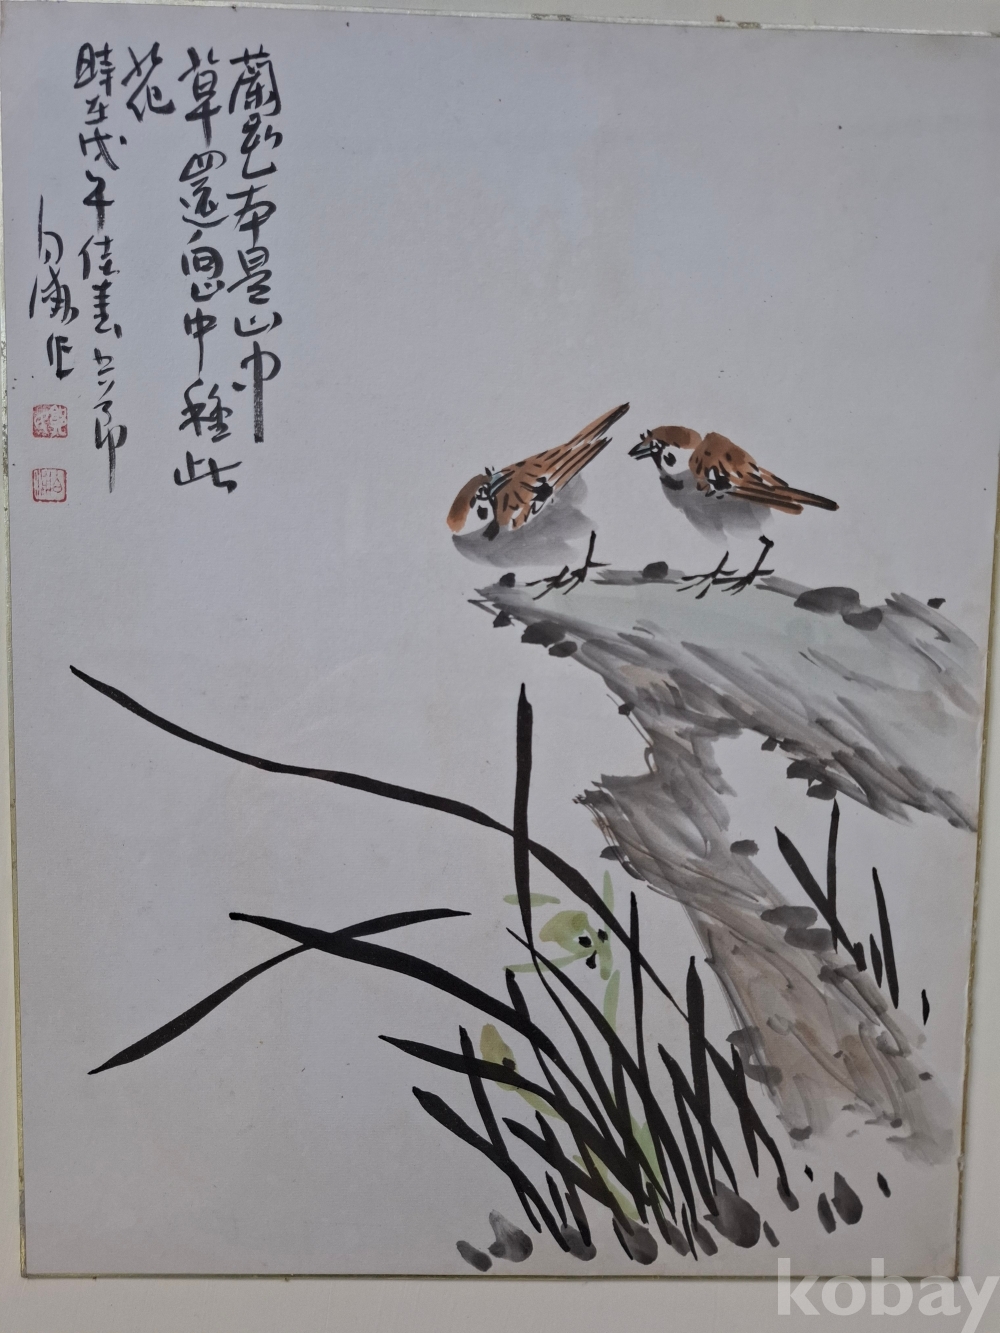 蘭花本是山中
草還向山中種此
花
時在戊午佳春之節
作
kobay